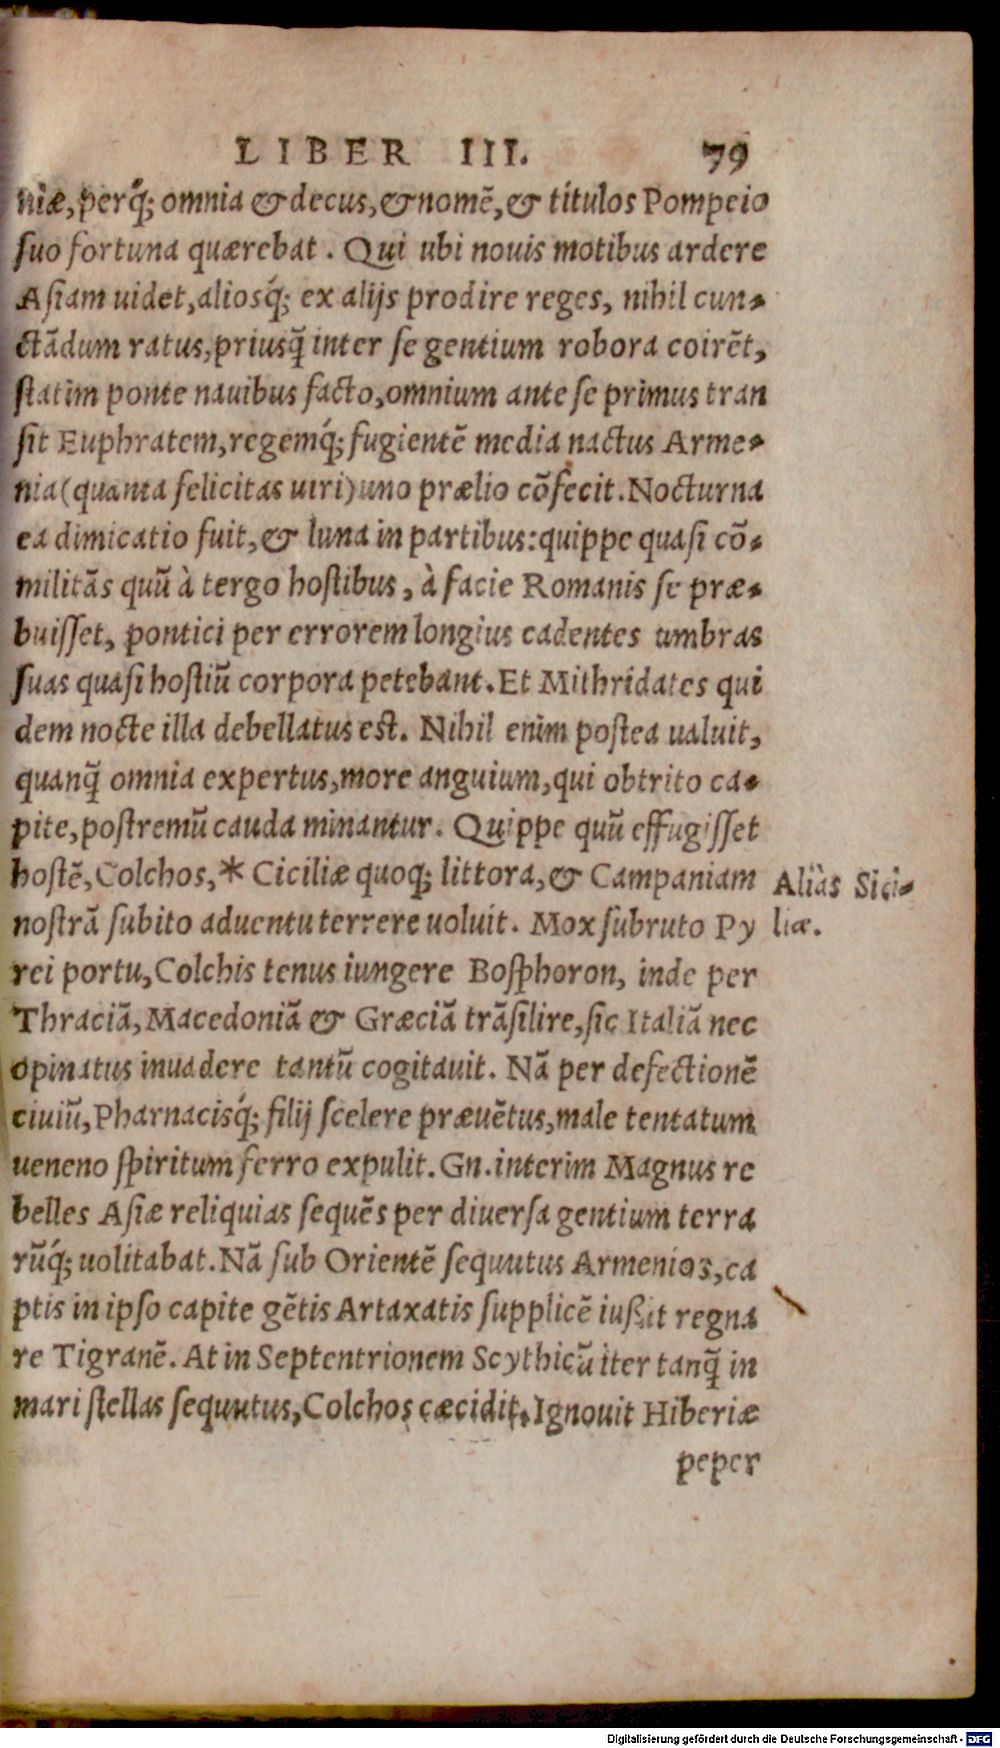 LIBER III. 79
niæ, perq́; omnia & decus, & nomē, & titulos Pompeio
ſuo fortuna quærebat. Qui ubi nouis motibus ardere
Aſiam uidet, aliosq́; ex alijs prodire reges, nihil cun-
ctādum ratus, priusq̃ inter ſe gentium robora coirēt,
ſtatim ponte nauibus facto, omnium ante ſe primus tran
ſit Euphratem, regemq́; fugientē media nactus Arme-
nia (quanta felicitas uiri) uno prælio cōfecit. Nocturna
ea dimicatio fuit, & luna in partibus: quippe quaſi cō-
militās quū à tergo hoſtibus, à facie Romanis ſe præ-
buiſſet, pontici per errorem longius cadentes umbras
ſuas quaſi hoſtiū corpora petebant. Et Mithridates qui
dem nocte illa debellatus eſt. Nihil enim poſtea ualuit,
quanq̃ omnia expertus, more anguium, qui obtrito ca-
pite, poſtremū cauda minantur. Quippe quū effugiſſet
hoſtē, Colchos, * Ciciliæ quoq; littora, & Campaniam
Aliàs Sici-
noſtrā ſubito aduentu terrere uoluit. Mox ſubruto Py
liæ.
rei portu, Colchis tenus iungere Boſphoron, inde per
Thraciā, Macedoniā & Græciā trāſilire, ſic Italiā nec
opinatus inuadere tantū cogitauit. Nā per defectionē
ciuiū, Pharnacisq́; filij ſcelere præuētus, male tentatum
ueneno ſpiritum ferro expulit. Gn. interim Magnus re
belles Aſiæ reliquias ſequēs per diuerſa gentium terra
rūq́; uolitabat. Nā ſub Orientē ſequutus Armenios, ca
ptis in ipſo capite gētis Artaxatis ſupplicē iußit regna
re Tigranē. At in Septentrionem Scythicū iter tanq̃ in
mari ſtellas ſequutus, Colchos cæcidit. Ignouit Hiberiæ
peper
Digitalisierung gefördert durch die Deutsche Forschungsgemeinschaft - DFG